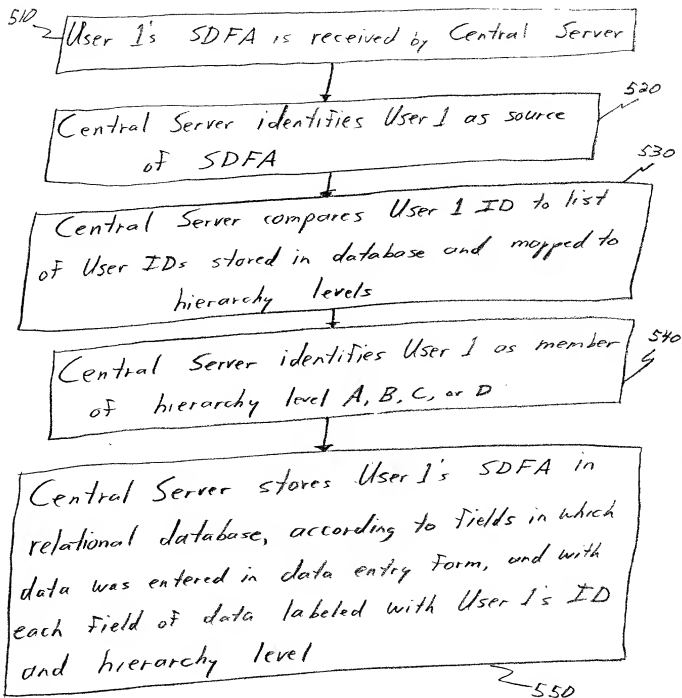 510
User 1's SDFA is received by Central Server
520
Central Server identifies User 1 as source
of SDFA
530
Central Server compares User 1 ID to list
of User IDs stored in database and mapped to
hierarchy levels
540
Central Server identifies User 1 as member
of hierarchy level A, B, C, or D
Central Server stores User 1's SDFA in
relational database, according to fields in which
data was entered in data entry form, and with
each field of data labeled with User 1's ID
and hierarchy level
550